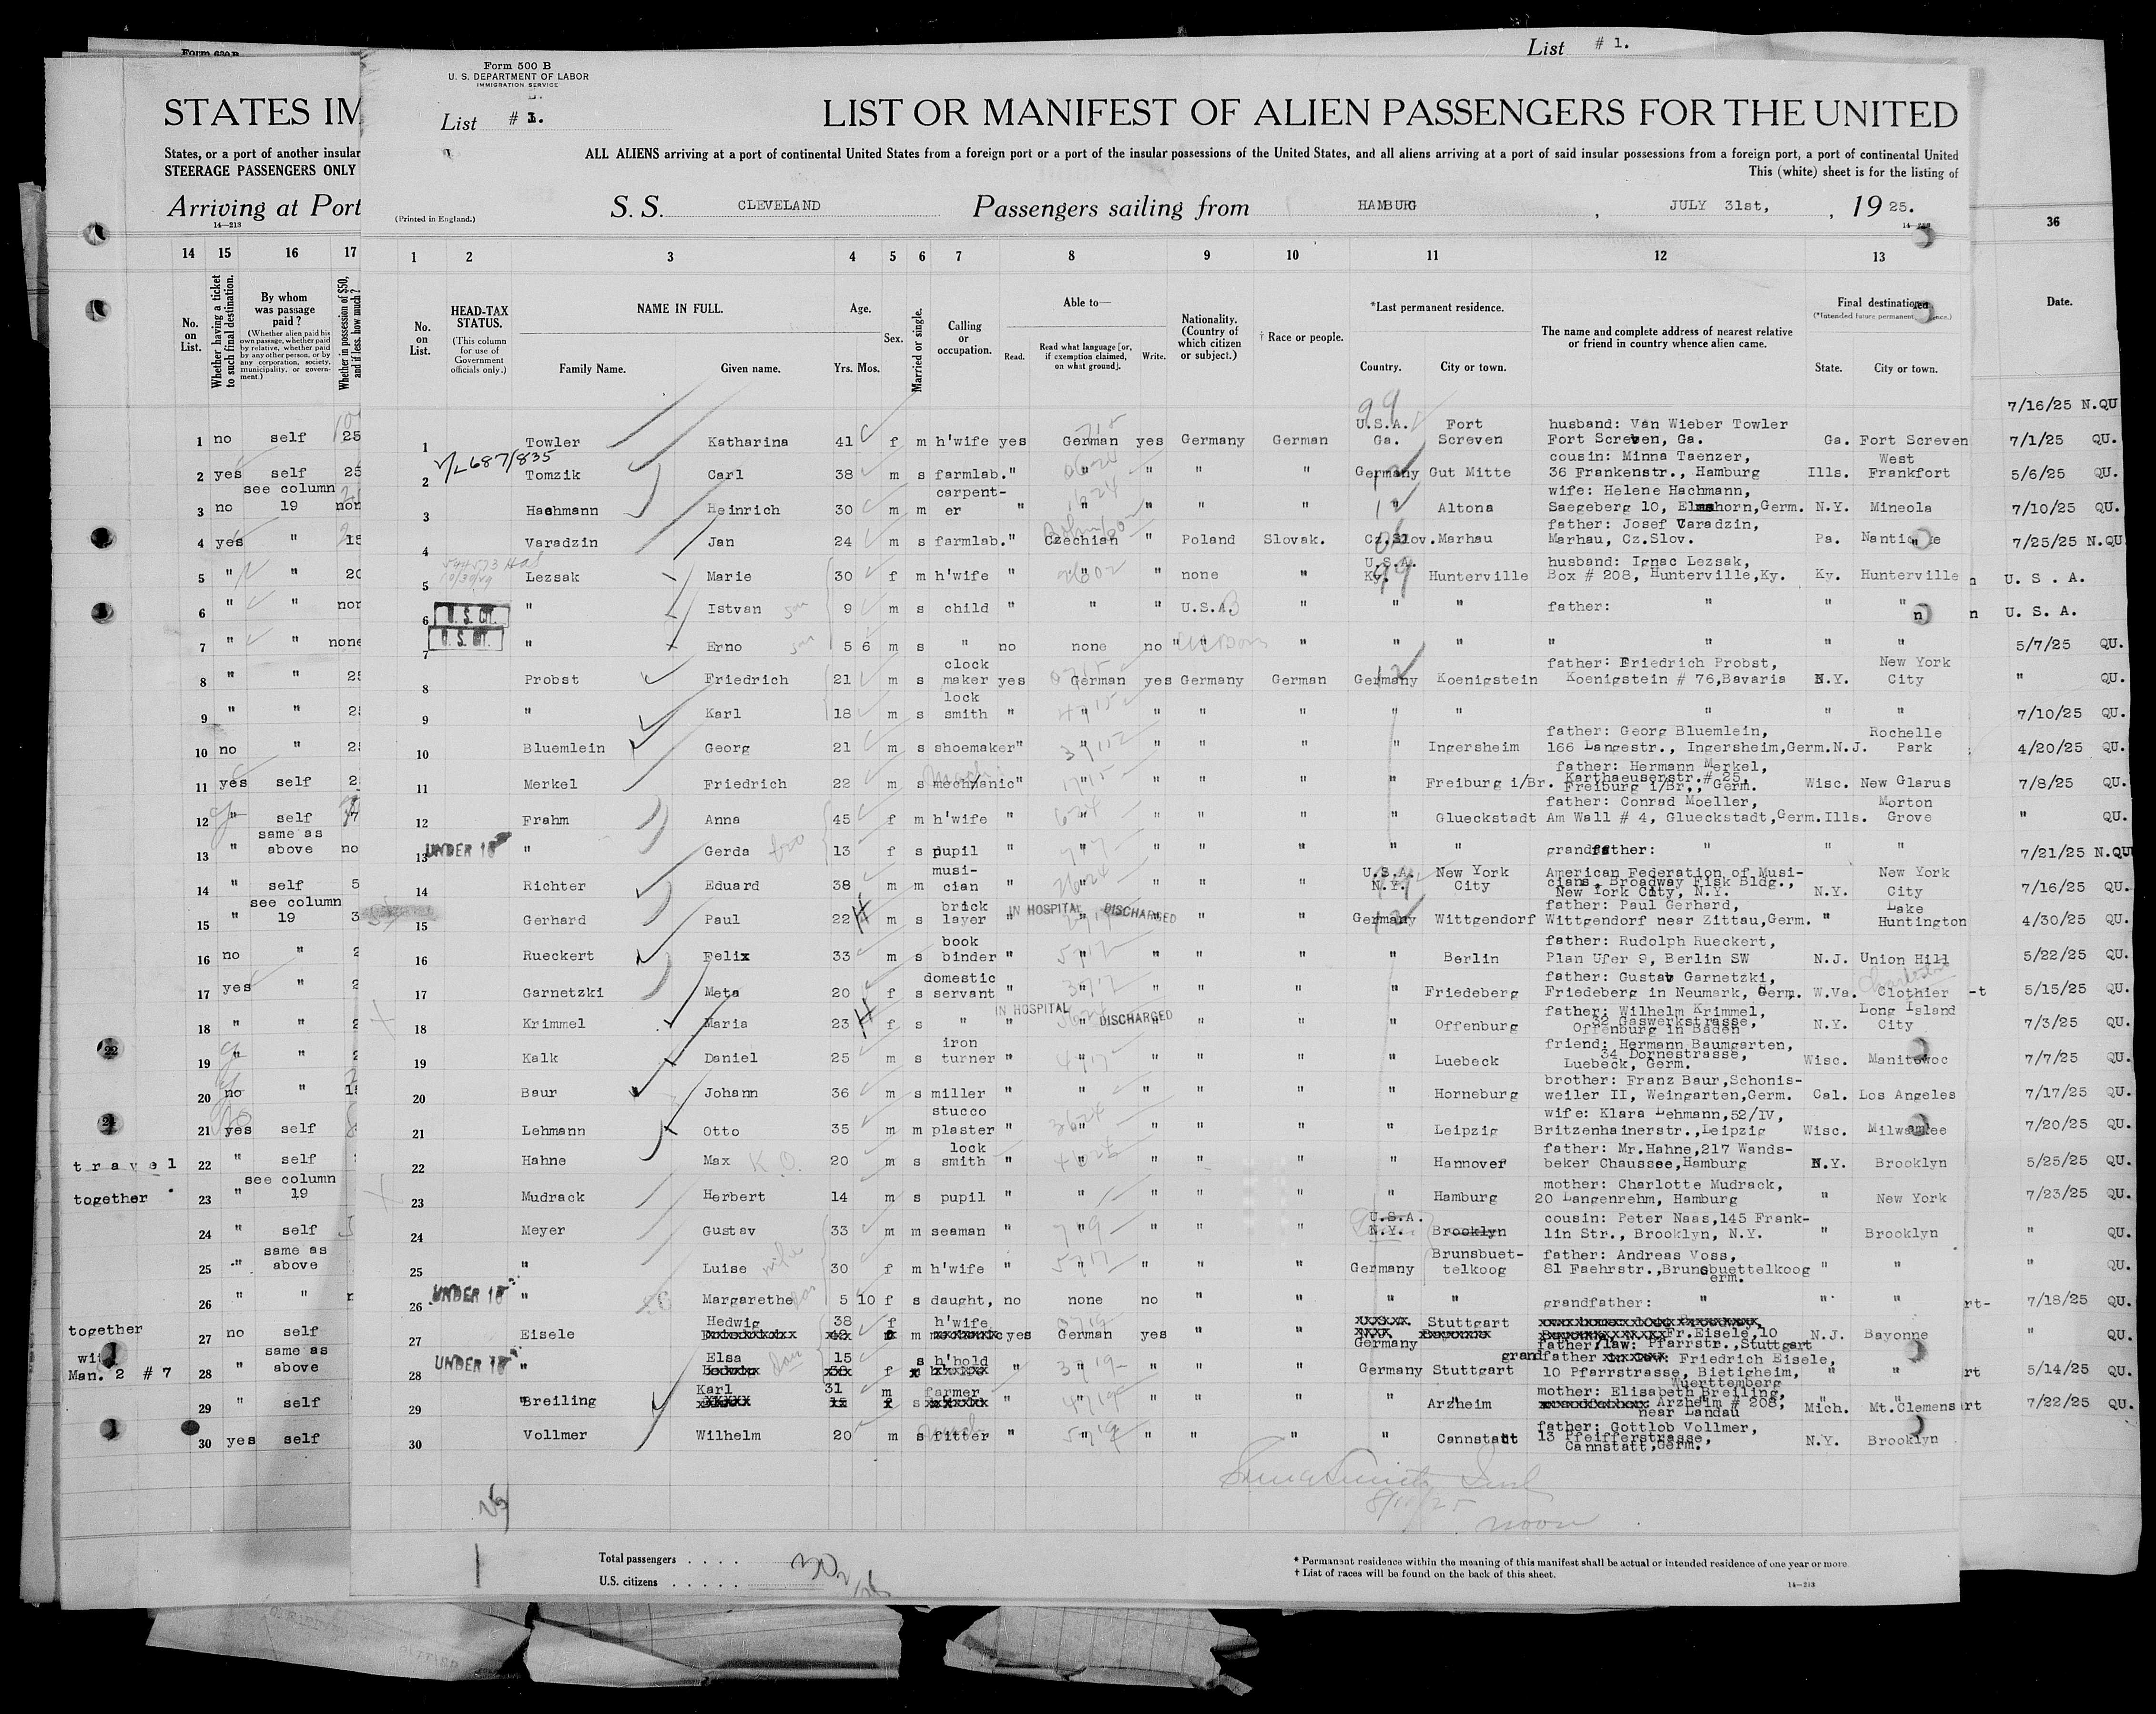 Form 630 B
List # 1.
Form 500 B
U. S. DEPARTMENT OF LABOR
IMMIGRATION SERVICE
List # 1.
STATES IM
LIST OR MANIFEST OF ALIEN PASSENGERS FOR THE UNITED
States, or a port of another insular
STEERAGE PASSENGERS ONLY
ALL ALIENS arriving at a port of continental United States from a foreign port or a port of the insular possessions of the United States, and all aliens arriving at a port of said insular possessions from a foreign port, a port of continental United
This (white) sheet is for the listing of
Arriving at Port
14—213
(Printed in England.)
S. S. CLEVELAND Passengers sailing from HAMBURG , JULY 31st, , 19 25.
14 15 16 17
No. on List.
Whether having a ticket to such final destination.
By whom was passage paid?
(Whether alien paid his own passage, whether paid by relative, whether paid by any other person, or by any corporation, society, municipality, or government.)
Whether in possession of $50, and if less, how much?
1 2 3 4 5 6 7 8 9 10 11 12 13 36
No. on List.
HEAD-TAX STATUS.
(This column for use of Government officials only.)
NAME IN FULL.
Family Name. Given name.
Age.
Yrs. Mos.
Sex.
Married or single.
Calling or occupation.
Able to—
Read. Read what language [or, if exemption claimed, on what ground]. Write.
Nationality. (Country of which citizen or subject.)
† Race or people.
*Last permanent residence.
Country. City or town.
The name and complete address of nearest relative or friend in country whence alien came.
Final destination
State. City or town.
Date.
7/16/25 N.QU
1 no self 25
1 Towler Katharina 41 f m h'wife yes German yes Germany German U.S.A. Ga. Fort Screven husband: Van Wieber Towler Fort Screven, Ga. Ga. Fort Screven 7/1/25 QU.
2 yes self 25
V/L 687/835
2 Tomzik Carl 38 m s farmlab. " " " " " Germany Gut Mitte cousin: Minna Taenzer, 36 Frankenstr., Hamburg Ills. West Frankfort 5/6/25 QU.
3 no see column 19 non
3 Hachmann Heinrich 30 m m carpenter " " " " " " Altona wife: Helene Hachmann, Saegeberg 10, Elmshorn, Germ. N.Y. Mineola 7/10/25 QU.
4 yes " 15
4 Varadzin Jan 24 m s farmlab. " Czechian " Poland Slovak. Cz.Slov. Marhau father: Josef Varadzin, Marhau, Cz.Slov. Pa. 7/25/25 N.QU
5 " " 20
5 Lezsak Marie 30 f m h'wife " " " none " U.S.A. Ky. Hunterville husband: Ignac Lezsak, Box # 208, Hunterville, Ky. Ky. Hunterville U. S. A.
6 " " non
6 U. S. CIT. " Istvan 9 m s child " " " U.S.A. " " " father: " " " U. S. A.
7 " " none
7 U. S. CIT. " Erno 5 6 m s " no none no " " " " " " " " 5/7/25 QU.
8 " " 25
8 Probst Friedrich 21 m s clock maker yes German yes Germany German Germany Koenigstein father: Friedrich Probst, Koenigstein # 76, Bavaria N.Y. New York City " QU.
9 " "
9 " Karl 18 m s lock smith " " " " " " " " " " 7/10/25 QU.
10 no "
10 Bluemlein Georg 21 m s shoemaker " " " " " " Ingersheim father: Georg Bluemlein, 166 Langestr., Ingersheim, Germ. N.J. Rochelle Park 4/20/25 QU.
11 yes self
11 Merkel Friedrich 22 m s mechanic " " " " " " Freiburg i/Br. father: Hermann Merkel, Karthaeuserstr. # 25, Freiburg i/Br., Germ. Wisc. New Glarus 7/8/25 QU.
12 " self
12 Frahm Anna 45 f m h'wife " " " " " " Glueckstadt father: Conrad Moeller, Am Wall # 4, Glueckstadt, Germ. Ills. Morton Grove " QU.
13 " same as above no
13 UNDER 16 " Gerda 13 f s pupil " " " " " " " grandfather: " " " 7/21/25 N.QU
14 " self 5
14 Richter Eduard 38 m m musician " " " " " U.S.A. N.Y. New York City American Federation of Musicians, Broadway Fisk Bldg., New York City, N.Y. N.Y. New York City 7/16/25 QU.
15 " see column 19 3
15 Gerhard Paul 22 m s brick layer " IN HOSPITAL DISCHARGED " " " Germany Wittgendorf father: Paul Gerhard, Wittgendorf near Zittau, Germ. " Lake Huntington 4/30/25 QU.
16 no " 2
16 Rueckert Felix 33 m s book binder " " " " " " Berlin father: Rudolph Rueckert, Plan Ufer 9, Berlin SW N.J. Union Hill 5/22/25 QU.
17 yes " 2
17 Garnetzki Meta 20 f s domestic servant " " " " " " Friedeberg father: Gustav Garnetzki, Friedeberg in Neumark, Germ. W.Va. Clothier 5/15/25 QU.
18 " " 2
18 Krimmel Maria 23 f s " " IN HOSPITAL DISCHARGED " " " Offenburg father: Wilhelm Krimmel, 32 Gaswerkstrasse, Offenburg in Baden N.Y. Long Island City 7/3/25 QU.
19 " " 2
19 Kalk Daniel 25 m s iron turner " " " " " " Luebeck friend: Hermann Baumgarten, 34 Dornestrasse, Luebeck, Germ. Wisc. Manitowoc 7/7/25 QU.
20 no "
20 Baur Johann 36 m s miller " " " " " " Horneburg brother: Franz Baur, Schonisweiler II, Weingarten, Germ. Cal. Los Angeles 7/17/25 QU.
21 yes self
21 Lehmann Otto 35 m m stucco plaster " " " " " " Leipzig wife: Klara Lehmann, 52/IV, Britzenhainerstr., Leipzig Wisc. Milwaukee 7/20/25 QU.
travel 22 " self
22 Hahne Max 20 m s lock smith " " " " " " Hannover father: Mr. Hahne, 217 Wandsbeker Chaussee, Hamburg N.Y. Brooklyn 5/25/25 QU.
together 23 " see column 19
23 Mudrack Herbert 14 m s pupil " " " " " " Hamburg mother: Charlotte Mudrack, 20 Langenrehm, Hamburg " New York 7/23/25 QU.
24 " self
24 Meyer Gustav 33 m m seaman " " " " " U.S.A. N.Y. Brooklyn cousin: Peter Naas, 145 Franklin Str., Brooklyn, N.Y. " Brooklyn " QU.
25 " same as above
25 " Luise wife 30 f m h'wife " " " " " Germany Brunsbuettelkoog father: Andreas Voss, 81 Faehrstr., Brunsbuettelkoog " " " QU.
26 " "
26 UNDER 16 " Margarethe 5 10 f s daught, no none no " " " " grandfather: " " " 7/18/25 QU.
together 27 no self
27 Eisele Hedwig 38 f m h'wife yes German yes " " Germany Stuttgart Fr. Eisele, 10 father/law: Pfarrstr., Stuttgart N.J. Bayonne " QU.
Man. 2 # 7 28 " same as above
28 UNDER 16 " Elsa 15 f s h'hold " " " " " Germany Stuttgart grandfather : Friedrich Eisele, 10 Pfarrstrasse, Bietigheim, Wuerttemberg " " 5/14/25 QU.
29 " self
29 Breiling Karl 31 m s farmer " " " " " " Arzheim mother: Elisabeth Breiling, Arzheim # 208, near Landau Mich. Mt.Clemens 7/22/25 QU.
30 yes self
30 Vollmer Wilhelm 20 m s fitter " " " " " " Cannstatt father: Gottlob Vollmer, 13 Pfeifferstrasse, Cannstatt, Germ. N.Y. Brooklyn
8/10/25
noon
Total passengers . . . . 30
U.S. citizens . . . . .
* Permanent residence within the meaning of this manifest shall be actual or intended residence of one year or more.
† List of races will be found on the back of this sheet.
14—213